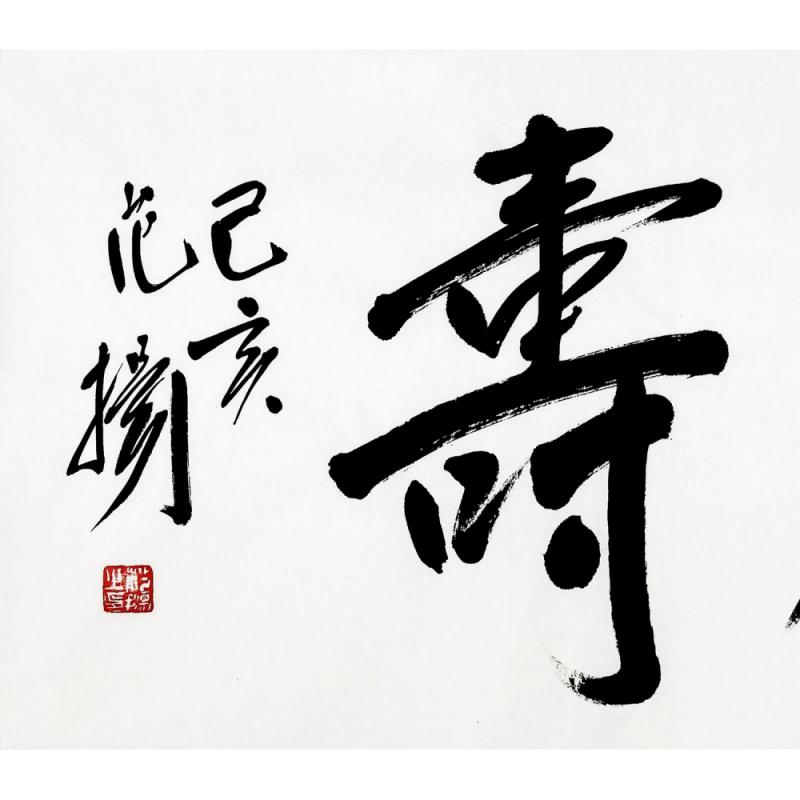 壽
己亥
范揚